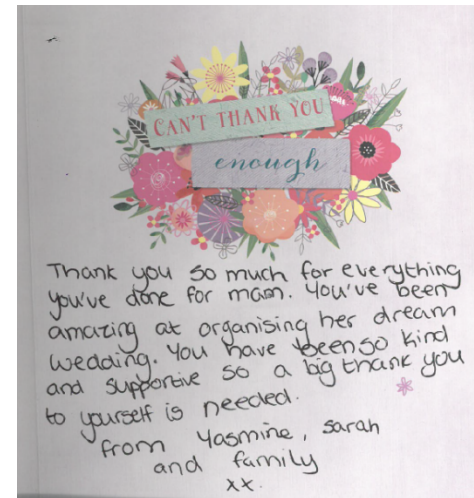 CAN'T THANK YOU
enough
Thank you so much for everything
you've done for mam. You've been
amazing at organising her dream
wedding. You have been so kind
and supportive so a big thank you
to yourself is needed.
from Yasmine, Sarah
and family
xx.